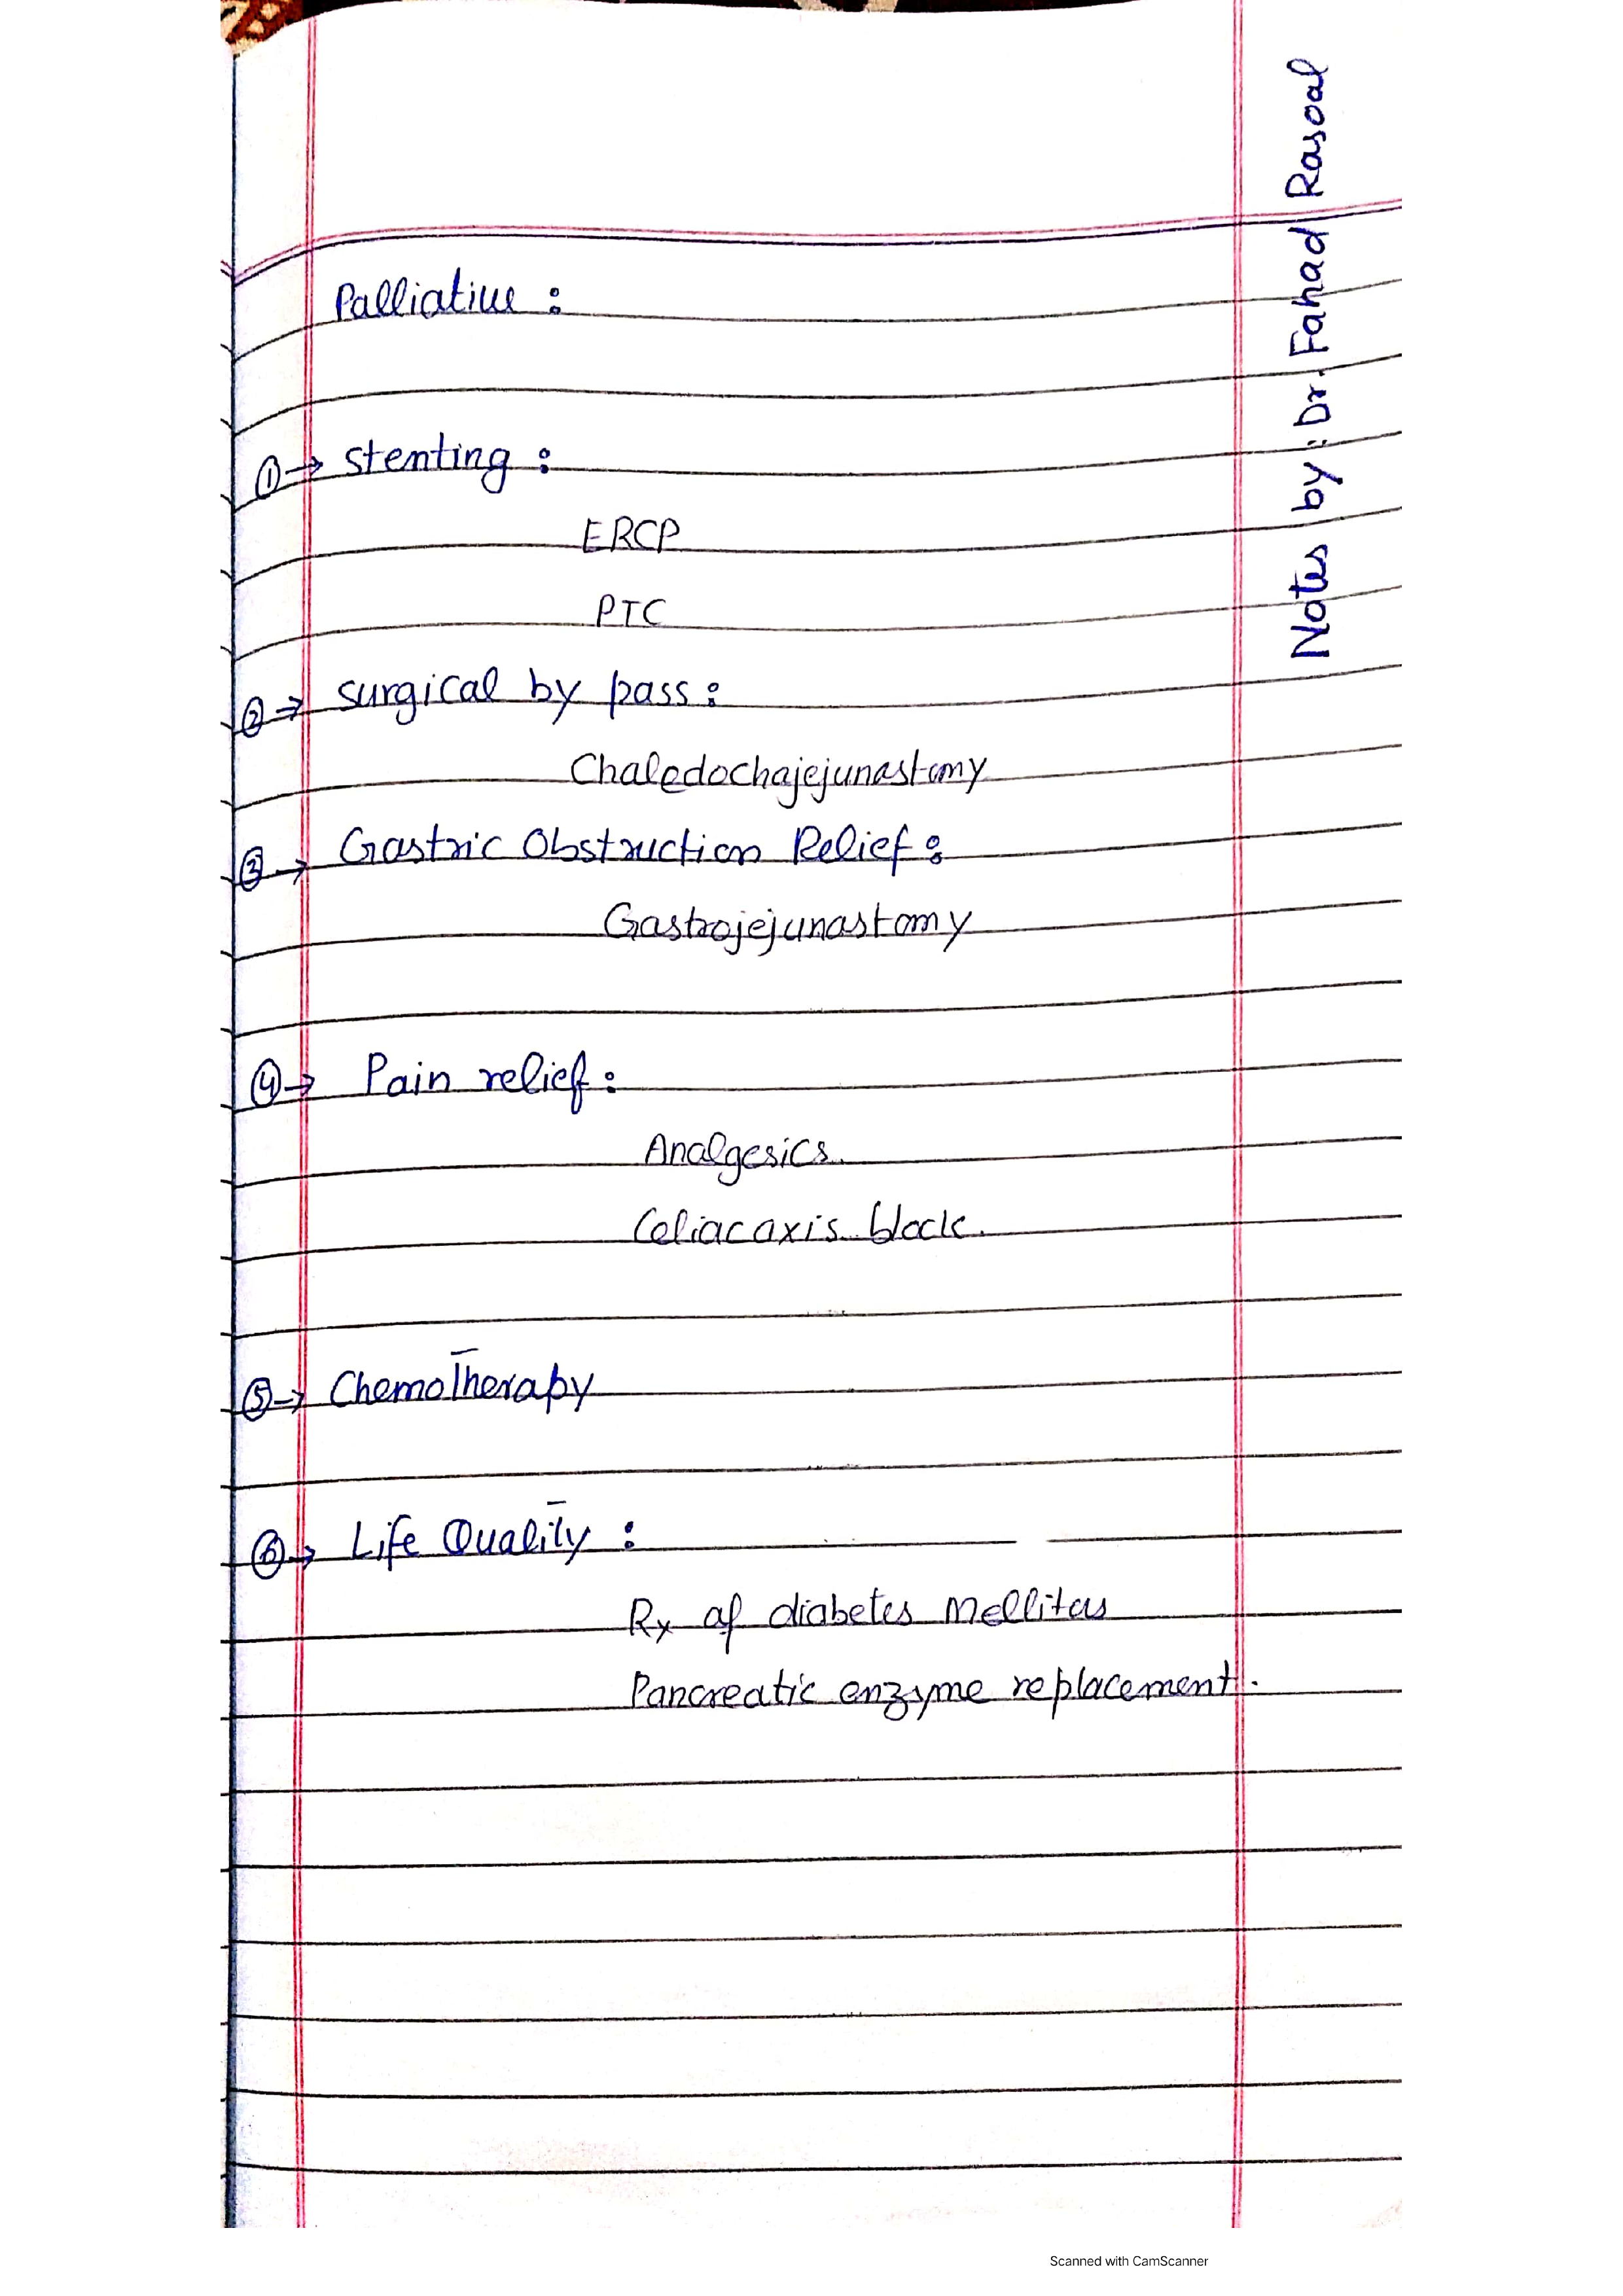 Palliative :
①→ Stenting :
ERCP
PTC
②→ Surgical by pass :
Choledochojejunostomy
③→ Gastric Obstruction Relief :
Gastrojejunostomy
④→ Pain relief :
Analgesics.
Celiac axis block.
⑤→ ChemoTherapy
⑥→ Life Quality :
Rx of diabetes mellitus
Pancreatic enzyme replacement.
Notes by : Dr. Fahad Rasool
Scanned with CamScanner